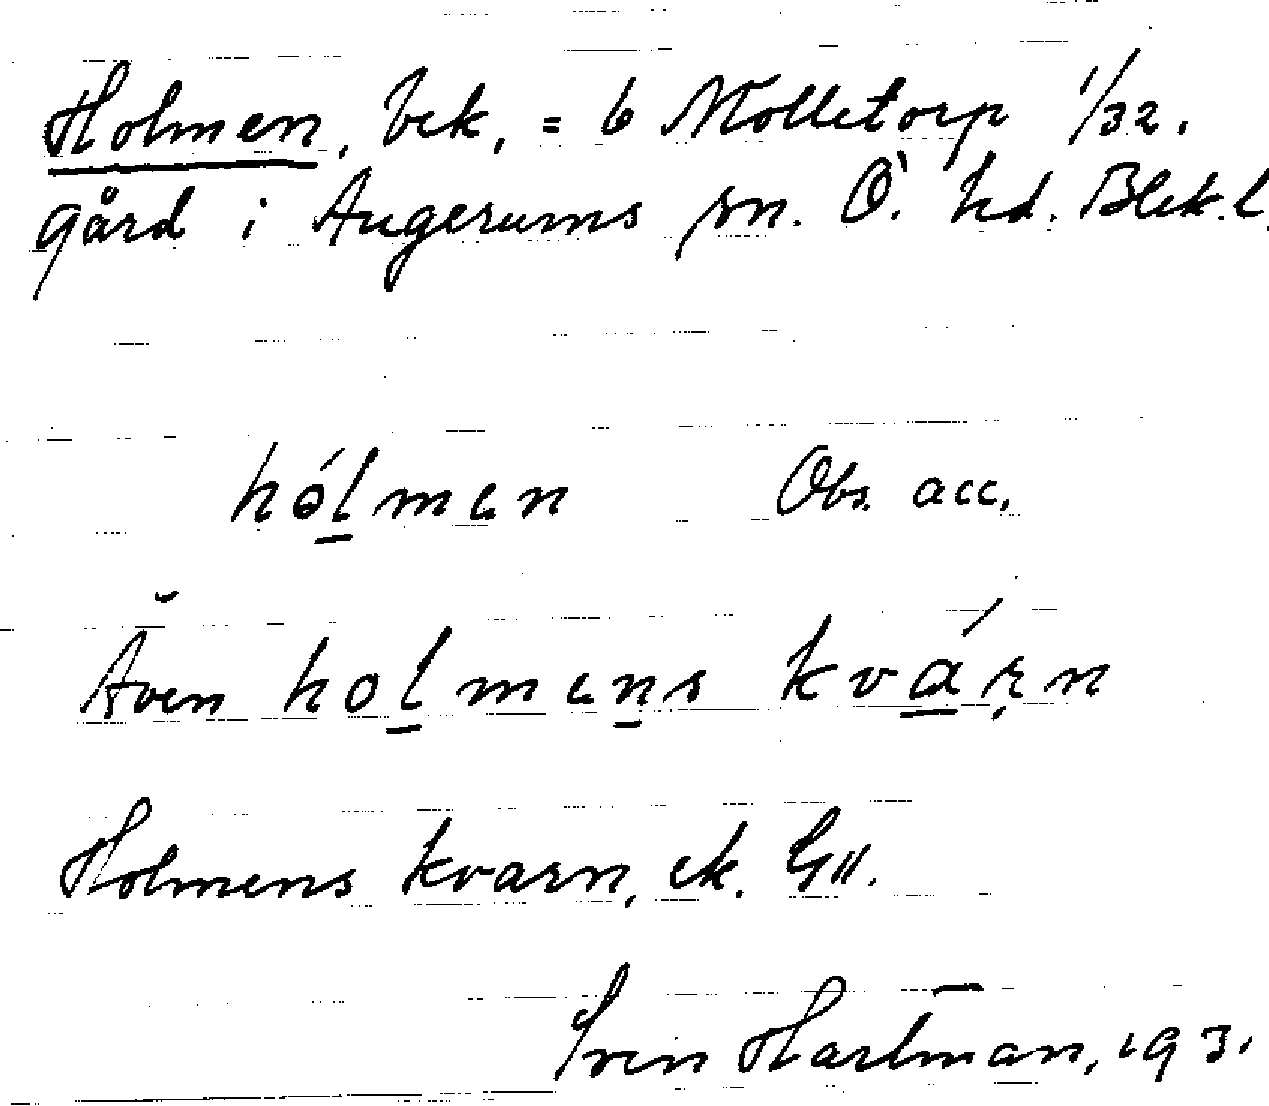 Holmen, bek, = 6 Mölletorp 1/32.
gård i Augerums sn. Ö. hd. Blek. l.
hólmen Obs. acc.
Även holmens kvárn
Holmens kvarn, ek. G11.
Sven Hartman, 193.